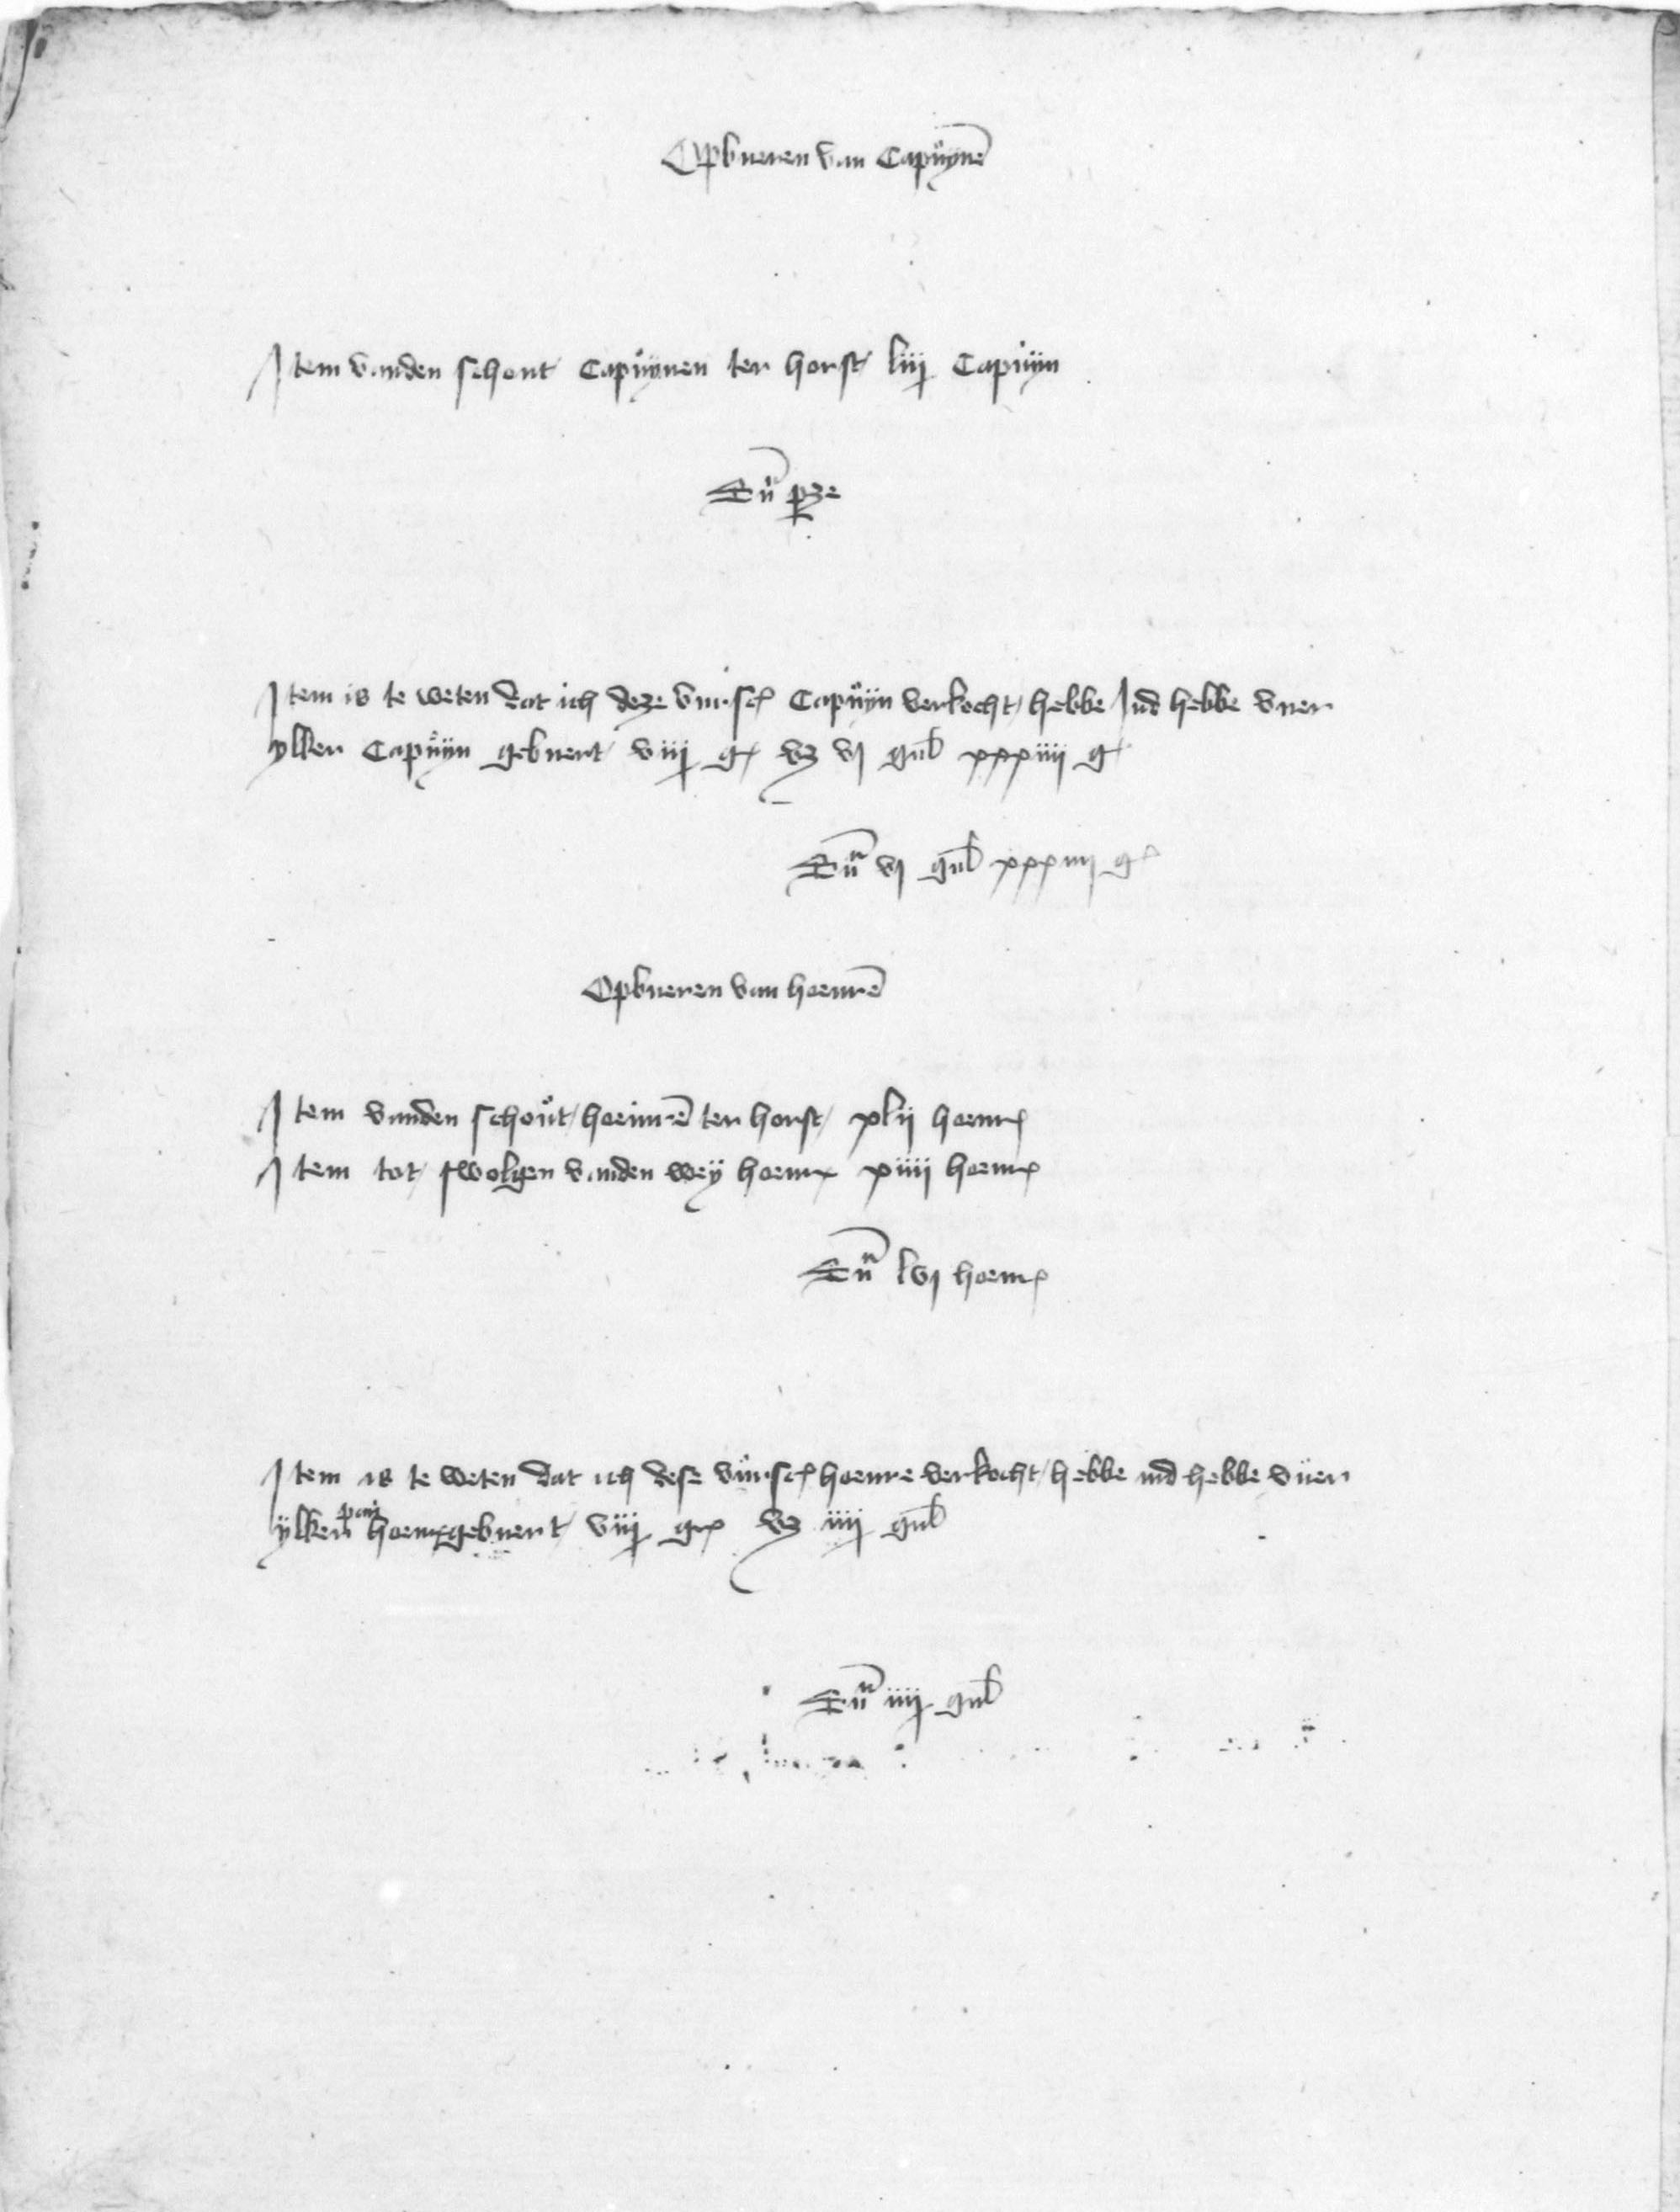 Opbueren van Capuynē
Item vanden schout Capuynen ter horst liij Capuyn
Sūa p̱ze
Item is te weten dat ich deze vursc̄ Capuyn verkocht hebbe Ind hebbe vuer
ylken Capuyn gebuert viij gr̄ vz vj gul̄ xxxiiij gr̄
Sūa vj gul̄ xxxiiij gr̄
Opbueren van hoenrē
Item vanden schout hoeinrē ter horst xlij hoenr̄
Item tot swolgen vanden wey hoenr̄ xiiij hoenr̄
Sūa lvj hoenr̄
Item is te weten dat ich dese vursc̄ hoenre verkocht hebbe ind hebbe vuer
ylken par hoenr̄ gebuert viij gr̄ vz iiij gul̄
Sūa iiij gul̄